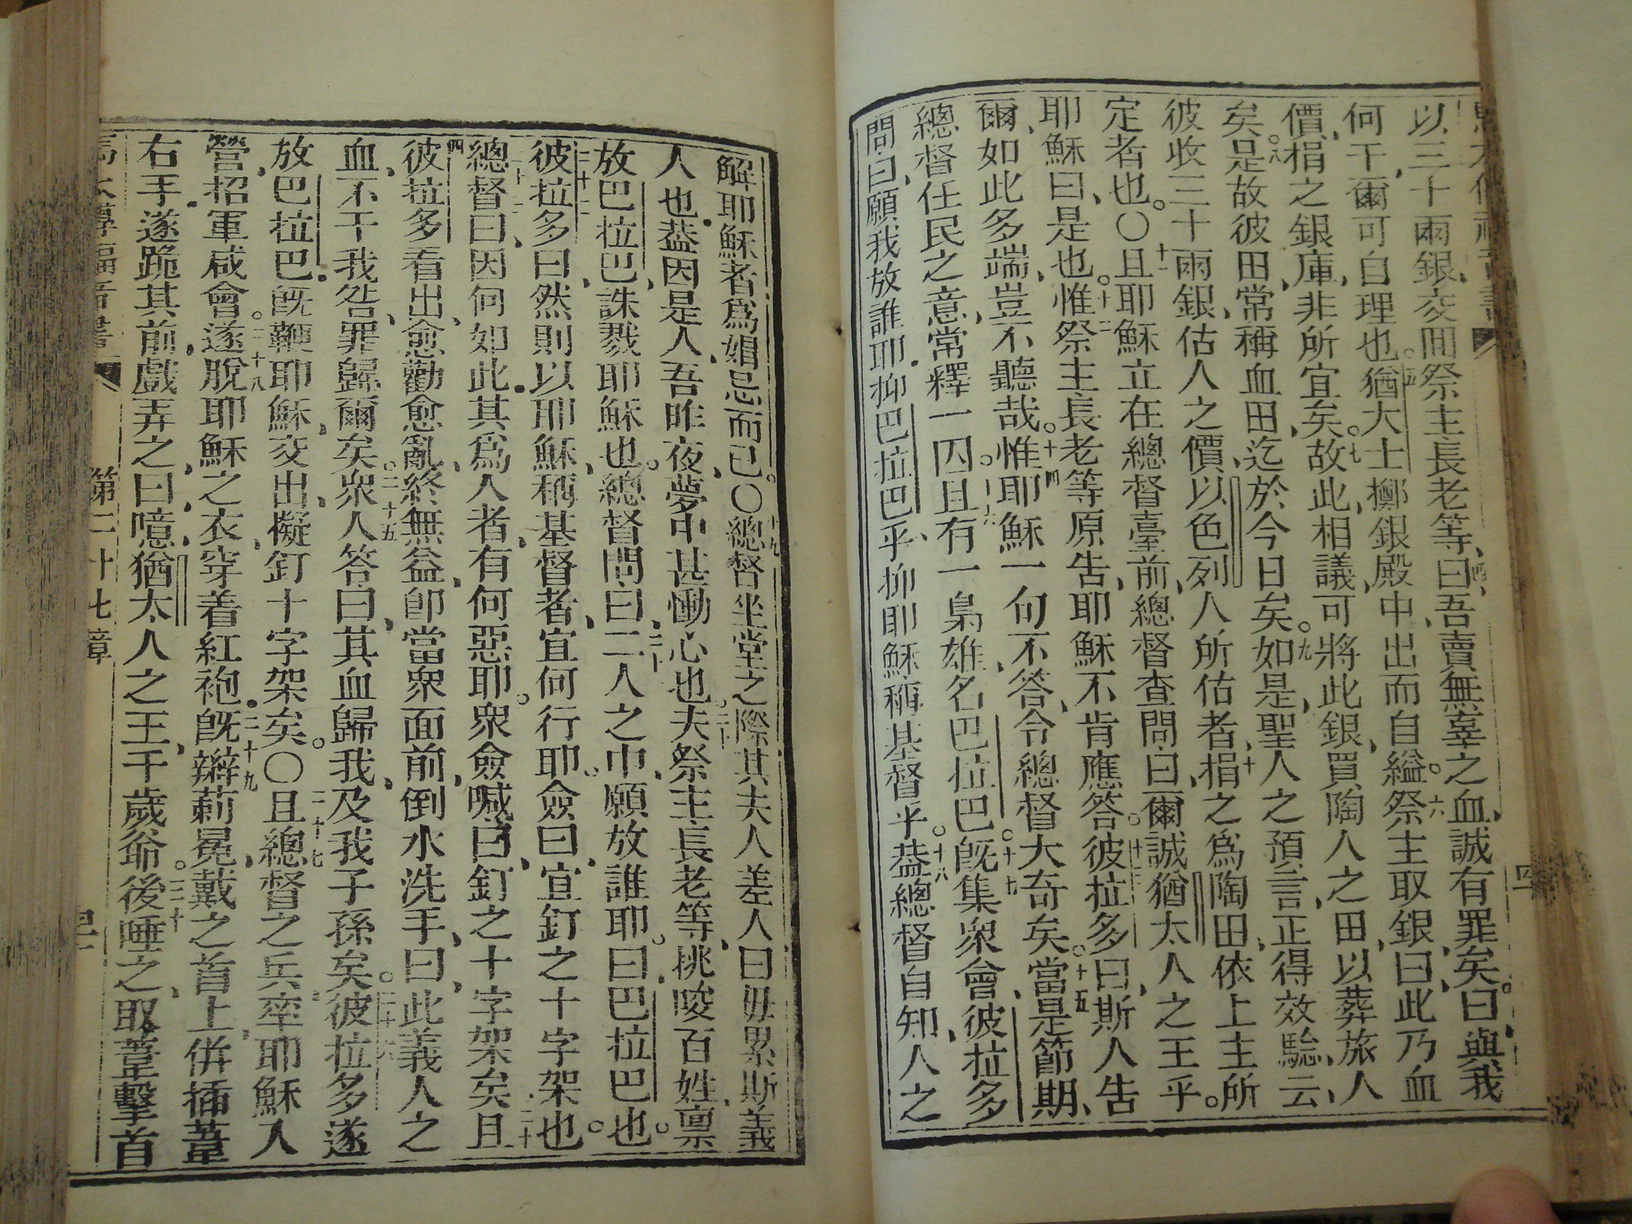 馬太傳福音書
以三十兩銀交間祭主長老等曰四吾賣無辜之血誠有罪矣曰與我
何干爾可自理也五猶大士擲銀殿中出而自縊六祭主取銀曰此乃血
價捐之銀庫非所宜矣七故此相議可將此銀買陶人之田以葬旅人
矣八是故彼田常稱血田迄於今日矣九如是聖人之預言正得效騐云
彼收三十兩銀估人之價以色列人所估者十捐之為陶田依上主所
定者也〇十一且耶穌立在總督臺前總督查問曰爾誠猶太人之王乎
耶穌曰是也十二惟祭主長老等原告耶穌不肯應答十三彼拉多曰斯人告
爾如此多端豈不聽哉十四惟耶穌一句不答令總督大奇矣十五當是節期
總督任民之意常釋一囚十六且有一梟雄名巴拉巴十七旣集衆會彼拉多
問曰願我放誰耶抑巴拉巴乎抑耶穌稱基督乎十八葢總督自知人之
解耶穌者為媢忌而已〇十九總督坐堂之際其夫人差人曰毋累斯義
人也葢因是人吾昨夜夢中甚慟心也二十夫祭主長老等挑唆百姓禀
放巴拉巴誅戮耶穌也二十一總督問曰二人之中願放誰耶曰巴拉巴也
二十二彼拉多曰然則以耶穌稱基督者宜何行耶僉曰宜釘之十字架也二十三
總督曰因何如此其為人者有何惡耶衆僉喊曰釘之十字架矣且二十四
彼拉多看出愈勸愈亂終無益卽當衆面前倒水洗手曰此義人之
血不干我咎罪歸爾矣二十五衆人答曰其血歸我及我子孫矣二十六彼拉多遂
放巴拉巴旣鞭耶穌交出擬釘十字架矣〇二十七且總督之兵率耶穌入
營招軍咸會二十八遂脫耶穌之衣穿着紅袍二十九旣辮莿冕戴之首上併插葦
右手遂跪其前戲弄之曰噫猶太人之王千歲爺後三十唾之取葦擊首
馬太傳福音書 第二十七章